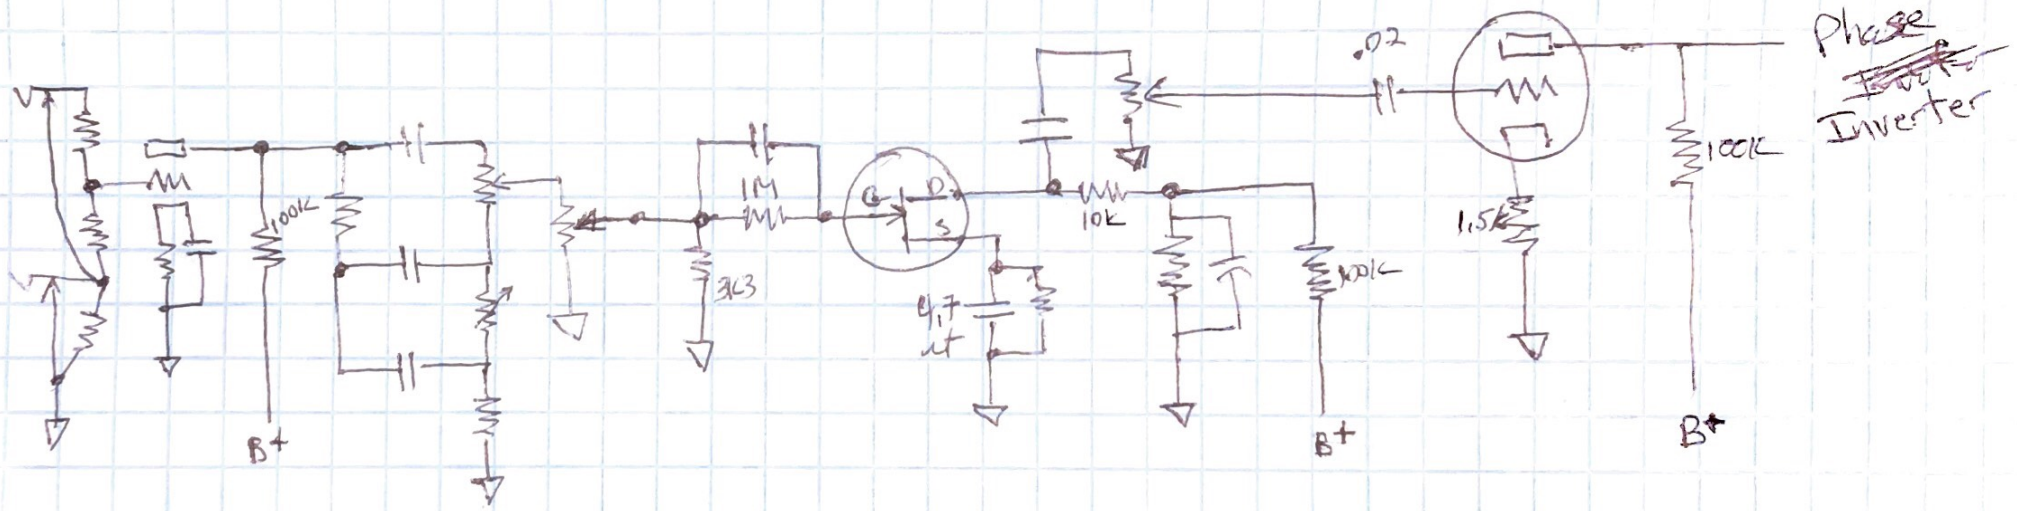 .02
Phase
Inverter
100K
1M
G
D
S
10K
100K
3K3
4,7
1,5K
100K
B+
B+
B+